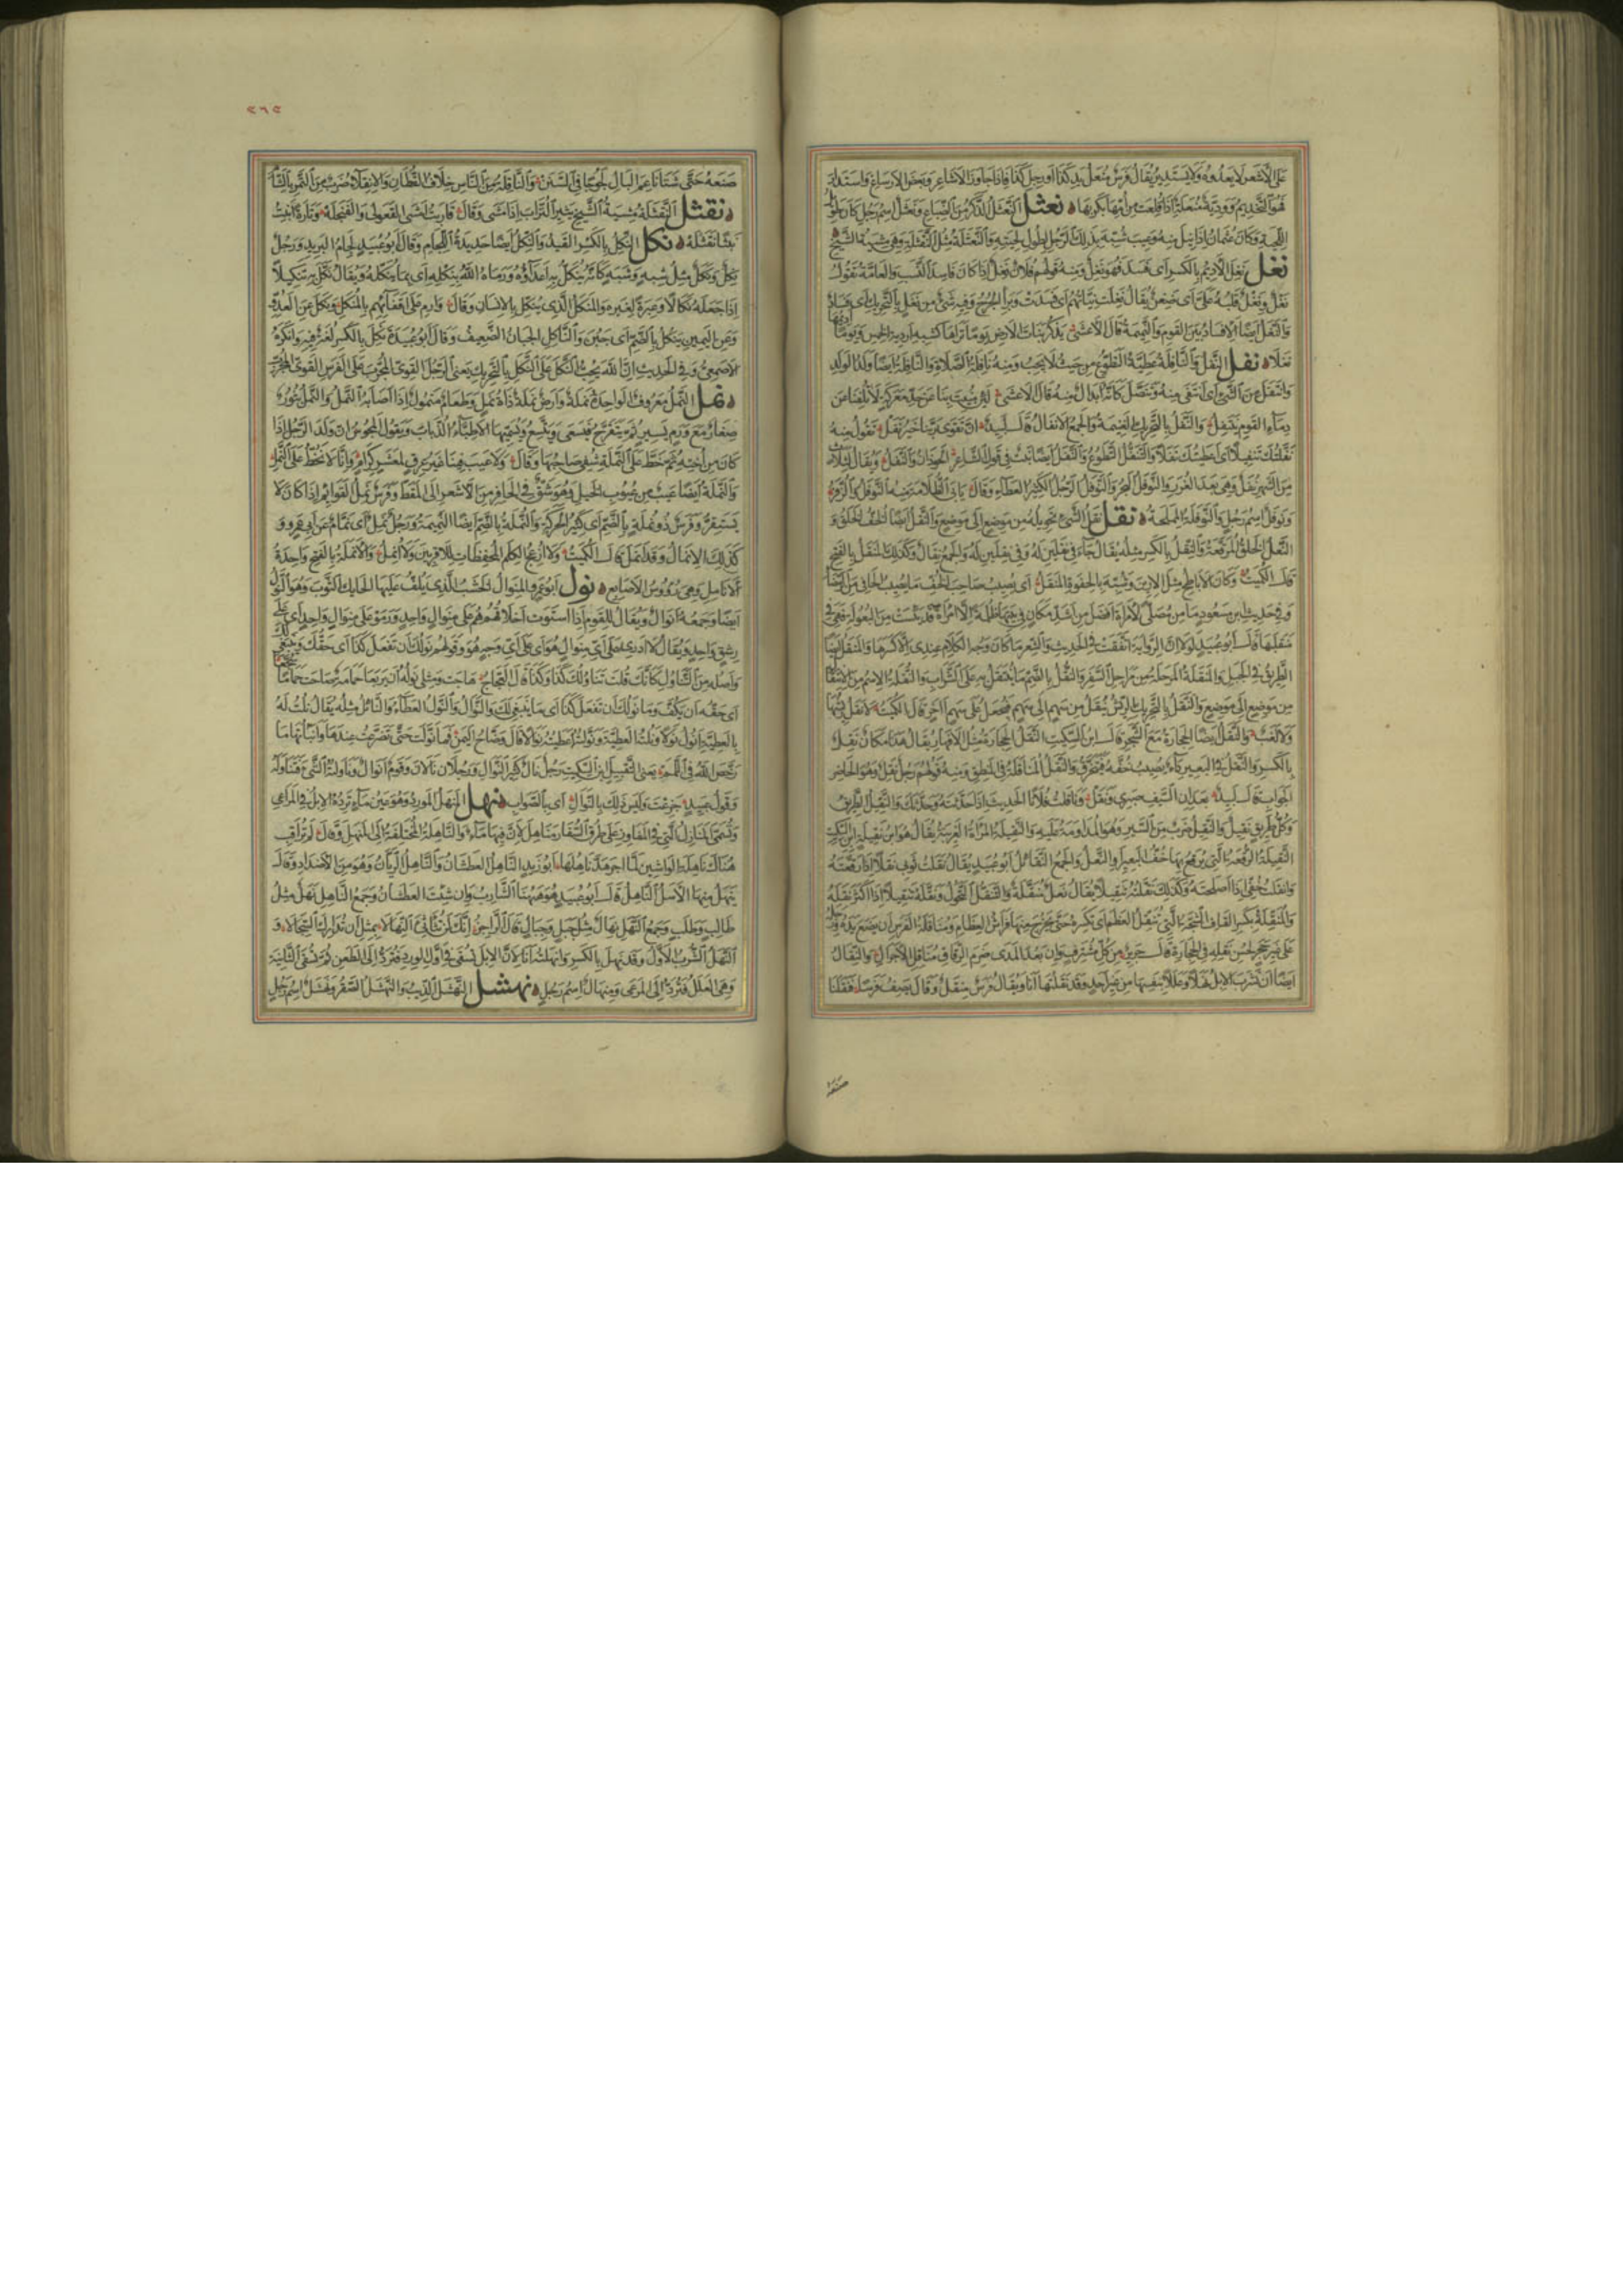 على الأشعر لا يعدوه ولا يستدير يقال فرس منعل يد كذا أو رجل كذا فإذا جاوز الأشاعر وبعض الأرساغ واستدار
فهو التخديم وودية منعلة إذا قلعت من أمها بكربها نعثل النعثل الذكر من الضباع ونعثل اسم رجل كان طويل
اللحية وكان عثمان إذا نيل منه وعيب شبه بذلك الرجل لطول لحيته والنعثلة مثل النقثلة وهي مشية الشيخ
نغل نغل الأديم بالكسر أي فسد فهو نغل ومنه قولهم فلان نغل إذا كان فاسد النسب والعامة تقول
نغل ونغل قلبه علي أي ضغن يقال نغلت نياتهم أي فسدت وبرأ الجرح وفيه شيء من نغل بالتحريك أي فساد
والنغل أيضا الإفساد بين القوم والنميمة قال الأعشى يذكر نبات الأرض يوما تراها كشبه أردية الخمس ويوما أديمها
نغلا نفل النفل والنافلة عطية التطوع من حيث لا يجب ومنه نافلة الصلاة والنافلة أيضا ولد الولد
وانتفل من الشيء أي انتفى منه وتنصل كأنه إبدال منه قال الأعشى لئن منيت بنا عن جد معركة لا تلفنا عن
دماء القوم ننتفل والنفل بالتحريك الغنيمة والجمع الأنفال قال لبيد إن تقوى ربنا خير نفل تقول منه
نفلتك تنفيلا أي أعطيتك نفلا والتنفل التطوع والنفل أيضا نبت في قول الشاعر الحوذان والنفل ويقال لثلاث
من الشهر نفل وهي بعد الغرر والنوفل البحر والنوفل الرجل الكثير العطاء وقال يأبى الظلامة منه النوفل الزفر
ونوفل اسم رجل والنوفلة المملحة نقل نقل الشيء تحويله من موضع إلى موضع والنقل أيضا الخف الخلق و
النعل الخلق المرقعة والنقل بالكسر مثله يقال جاء في نقلين له وفي نعلين له والجمع نقال وكذلك المنقل بالفتح
قال الكميت وكان الأباطح مثل الإرين وشبه بالحفوة المنقل أي يصيب صاحب الخف ما يصيب الحافي من الرمضاء
وفي حديث ابن مسعود ما من مصلى لامرأة أفضل من أشد مكان في بيتها ظلمة إلا امرأة قد يئست من البعولة فهي في
منقلها قال أبو عبيد لولا أن الرواية اتفقت في الحديث والشعر ما كان وجه الكلام عندي إلا كسرها والمنقل أيضا
الطريق في الجبل والمنقلة المرحلة من مراحل السفر والنقل بالضم ما يتنقل به على الشراب والنقلة الاسم من الانتقال
من موضع إلى موضع والنقل بالتحريك الريش ينقل من سهم إلى سهم فيجعل على سهم آخر قال الكميت لا نقل ريشها
ولا لغب والنقل أيضا الحجارة مع الشجر قال ابن السكيت النقل الحجارة مثل الأفهار يقال هذا مكان نقل
بالكسر والنقل في البعير داء يصيب خفه فيتخرق والنقل المناقلة في المنطق ومنه قولهم رجل نقل وهو الحاضر
الجواب قال لبيد بعدان السيف صبري ونقل وناقلت فلانا الحديث إذا حدثته وحدثك والنقيل الطريق
وكل طريق نقيل والنقيل ضرب من السير وهو المداومة عليه والنقيلة المرأة الغريبة يقال هو ابن نقيلة ابن السكيت
النقيلة الرقعة التي يرقع بها خف البعير أو النعل والجمع النقائل أبو عبيد يقال نقلت ثوبي نقلا إذا رقعته
وأنقلت خفي إذا أصلحته وكذلك نقلته تنقيلا يقال نعل منقلة والتنقل التحول ونقله تنقيلا إذا أكثر نقله
والمنقلة بكسر القاف الشجة التي تنقل العظم أي تكسره حتى يخرج منها فراش العظام ومناقلة الفرس أن يضع يده ورجله
على غير حجر لحسن نقله في الحجارة قال جرير من كل مشترف وإن بعد المدى ضرم الرقاق مناقل الأجرال والنقال
أيضا أن تشرب الإبل نهلا وعللا بنفسها من غير أحد وقد نقلتها أنا ويقال فرس منقل وقال يصف فرسا فنقلنا
صنعه
٢٦٥
صنعه حتى شتا ناعم البال لجوجا في السنن والناقلة من الناس خلاف القطان والانقلاء ضرب من التمر بالشام
نقثل النقثلة مشية الشيخ يثير التراب إذا مشى وقال قاربت أمشي القعولى والفنجلة وتارة أنبث
نبثا نقثله نكل النكل بالكسر القيد والنكل أيضا حديدة اللجام وقال أبو عبيد لجام البريد ورجل
نكل ونكل مثل شبه وشبه كأنه ينكل به أعداؤه ورماه الله بنكله أي بما ينكله ويقال نكل به تنكيلا
إذا جعله نكالا وعبرة لغيره والمنكل الذي ينكل بالإنسان وقال وارم على أقفائهم بالمنكل ونكل عن العدو
وعن اليمين ينكل بالضم أي جبن والناكل الجبان الضعيف وقال أبو عبيدة نكل بالكسر لغة فيه وأنكره
الأصمعي وفي الحديث إن الله يحب النكل على النكل بالتحريك يعني الرجل القوي المجرب على الفرس القوي المجرب
نمل النمل معروف الواحدة نملة وأرض نملة ذات نمل وطعام منمول إذا أصابه النمل والنمل بثور
صغار مع ورم يسير ثم يتقرح فيسعى ويتسع ويسميها الأطباء الذباب ويقول المجوس إن ولد الرجل إذا
كان من أخته ثم خط على النملة شفي صاحبها وقال ولا عيب فينا غير عرق لمعشر كرام وأنا لا نخط على النمل
والنملة أيضا عيب من عيوب الخيل وهو شق في الحافر من الأشعر إلى المقط وفرس نمل القوائم إذا كان لا
يستقر وفرس ذو نملة بالضم أي كثير الحركة والنملة بالضم أيضا النميمة ورجل نمل أي نمام عن أبي عمرو و
كذلك الإنمال وقد أنمل قال الكميت ولا أزعج الكلم المحفظات للأقربين ولا أنمل والأنملة بالفتح واحدة
الأنامل وهي رؤوس الأصابع نول أبو عمرو المنوال الخشب الذي يلف عليها الحائك الثوب وهو النول
أيضا وجمعه أنوال ويقال للقوم إذا استوت أخلاقهم هم على منوال واحد ورموا على منوال واحد أي على
رشق واحد ويقال لا أدري على أي منوال هو أي على أي وجه هو وقولهم نولك أن تفعل كذا أي حقك وينبغي لك
وأصله من التناول كأنك قلت تناولك كذا وكذا قال العجاج هاجت ومثلي نوله أن يربعا حمامة ناحت حماما سجعا
أي حقه أن يكف وما نولك أن تفعل كذا أي ما ينبغي لك والنوال والنول العطاء والنائل مثله يقال نلت له
بالعطية أنول نولا ونلته العطية ونولته أعطيته نوالا قال وضاح اليمن فما نولت حتى تضرعت عندها وأنبأتها ما
رخص الله في اللمم يعني التقبيل ابن السكيت رجل نال كثير النوال ورجلان نالان وقوم أنوال وناولته الشيء فتناوله
وقول لبيد جزعت وليس ذلك بالنوال أي بالصواب نهل المنهل المورد وهو عين ماء ترده الإبل في المراعي
وتسمى المنازل التي في المفاوز على طرق السفار مناهل لأن فيها ماء والناهلة المختلفة إلى المنهل وقال لم تراقب
هناك ناهلة الواشين لما اجرهد ناهلها أبو زيد الناهل العطشان والناهل الريان وهو من الأضداد وقال
ينهل منها الأسل الناهل قال أبو عبيد هو ههنا الشارب وإن شئت العطشان وجمع الناهل نهل مثل
طالب وطلب وجمع النهل نهال مثل جبل وجبال قال الراجز إنك لن تثأثئ النهالا بمثل أن تدارك السجالا و
النهل الشرب الأول وقد نهل بالكسر وأنهلته أنا لأن الإبل تسقى في أول الورد فترد إلى العطن ثم تسقى الثانية
وهي العلل فترد إلى المرعى ومنهال اسم رجل نهشل النهشل الذئب والنهشل الصقر ونهشل اسم رجل